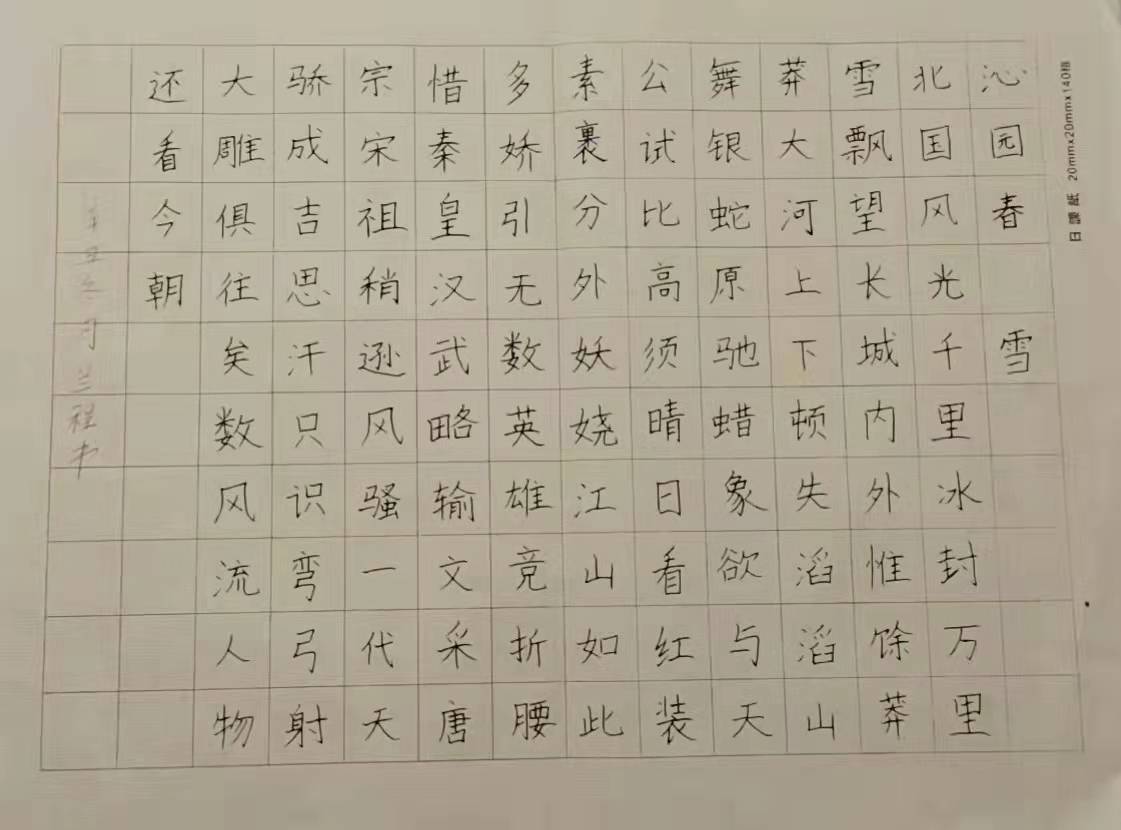 日課紙 20mmx20mmx140格
沁园春 雪
北国风光千里冰封万里
雪飘望长城内外惟馀莽
莽大河上下顿失滔滔山
舞银蛇原驰蜡象欲与天
公试比高须晴日看红装
素裹分外妖娆江山如此
多娇引无数英雄竞折腰
惜秦皇汉武略输文采唐
宗宋祖稍逊风骚一代天
骄成吉思汗只识弯弓射
大雕俱往矣数风流人物
还看今朝
辛丑冬月兰程书